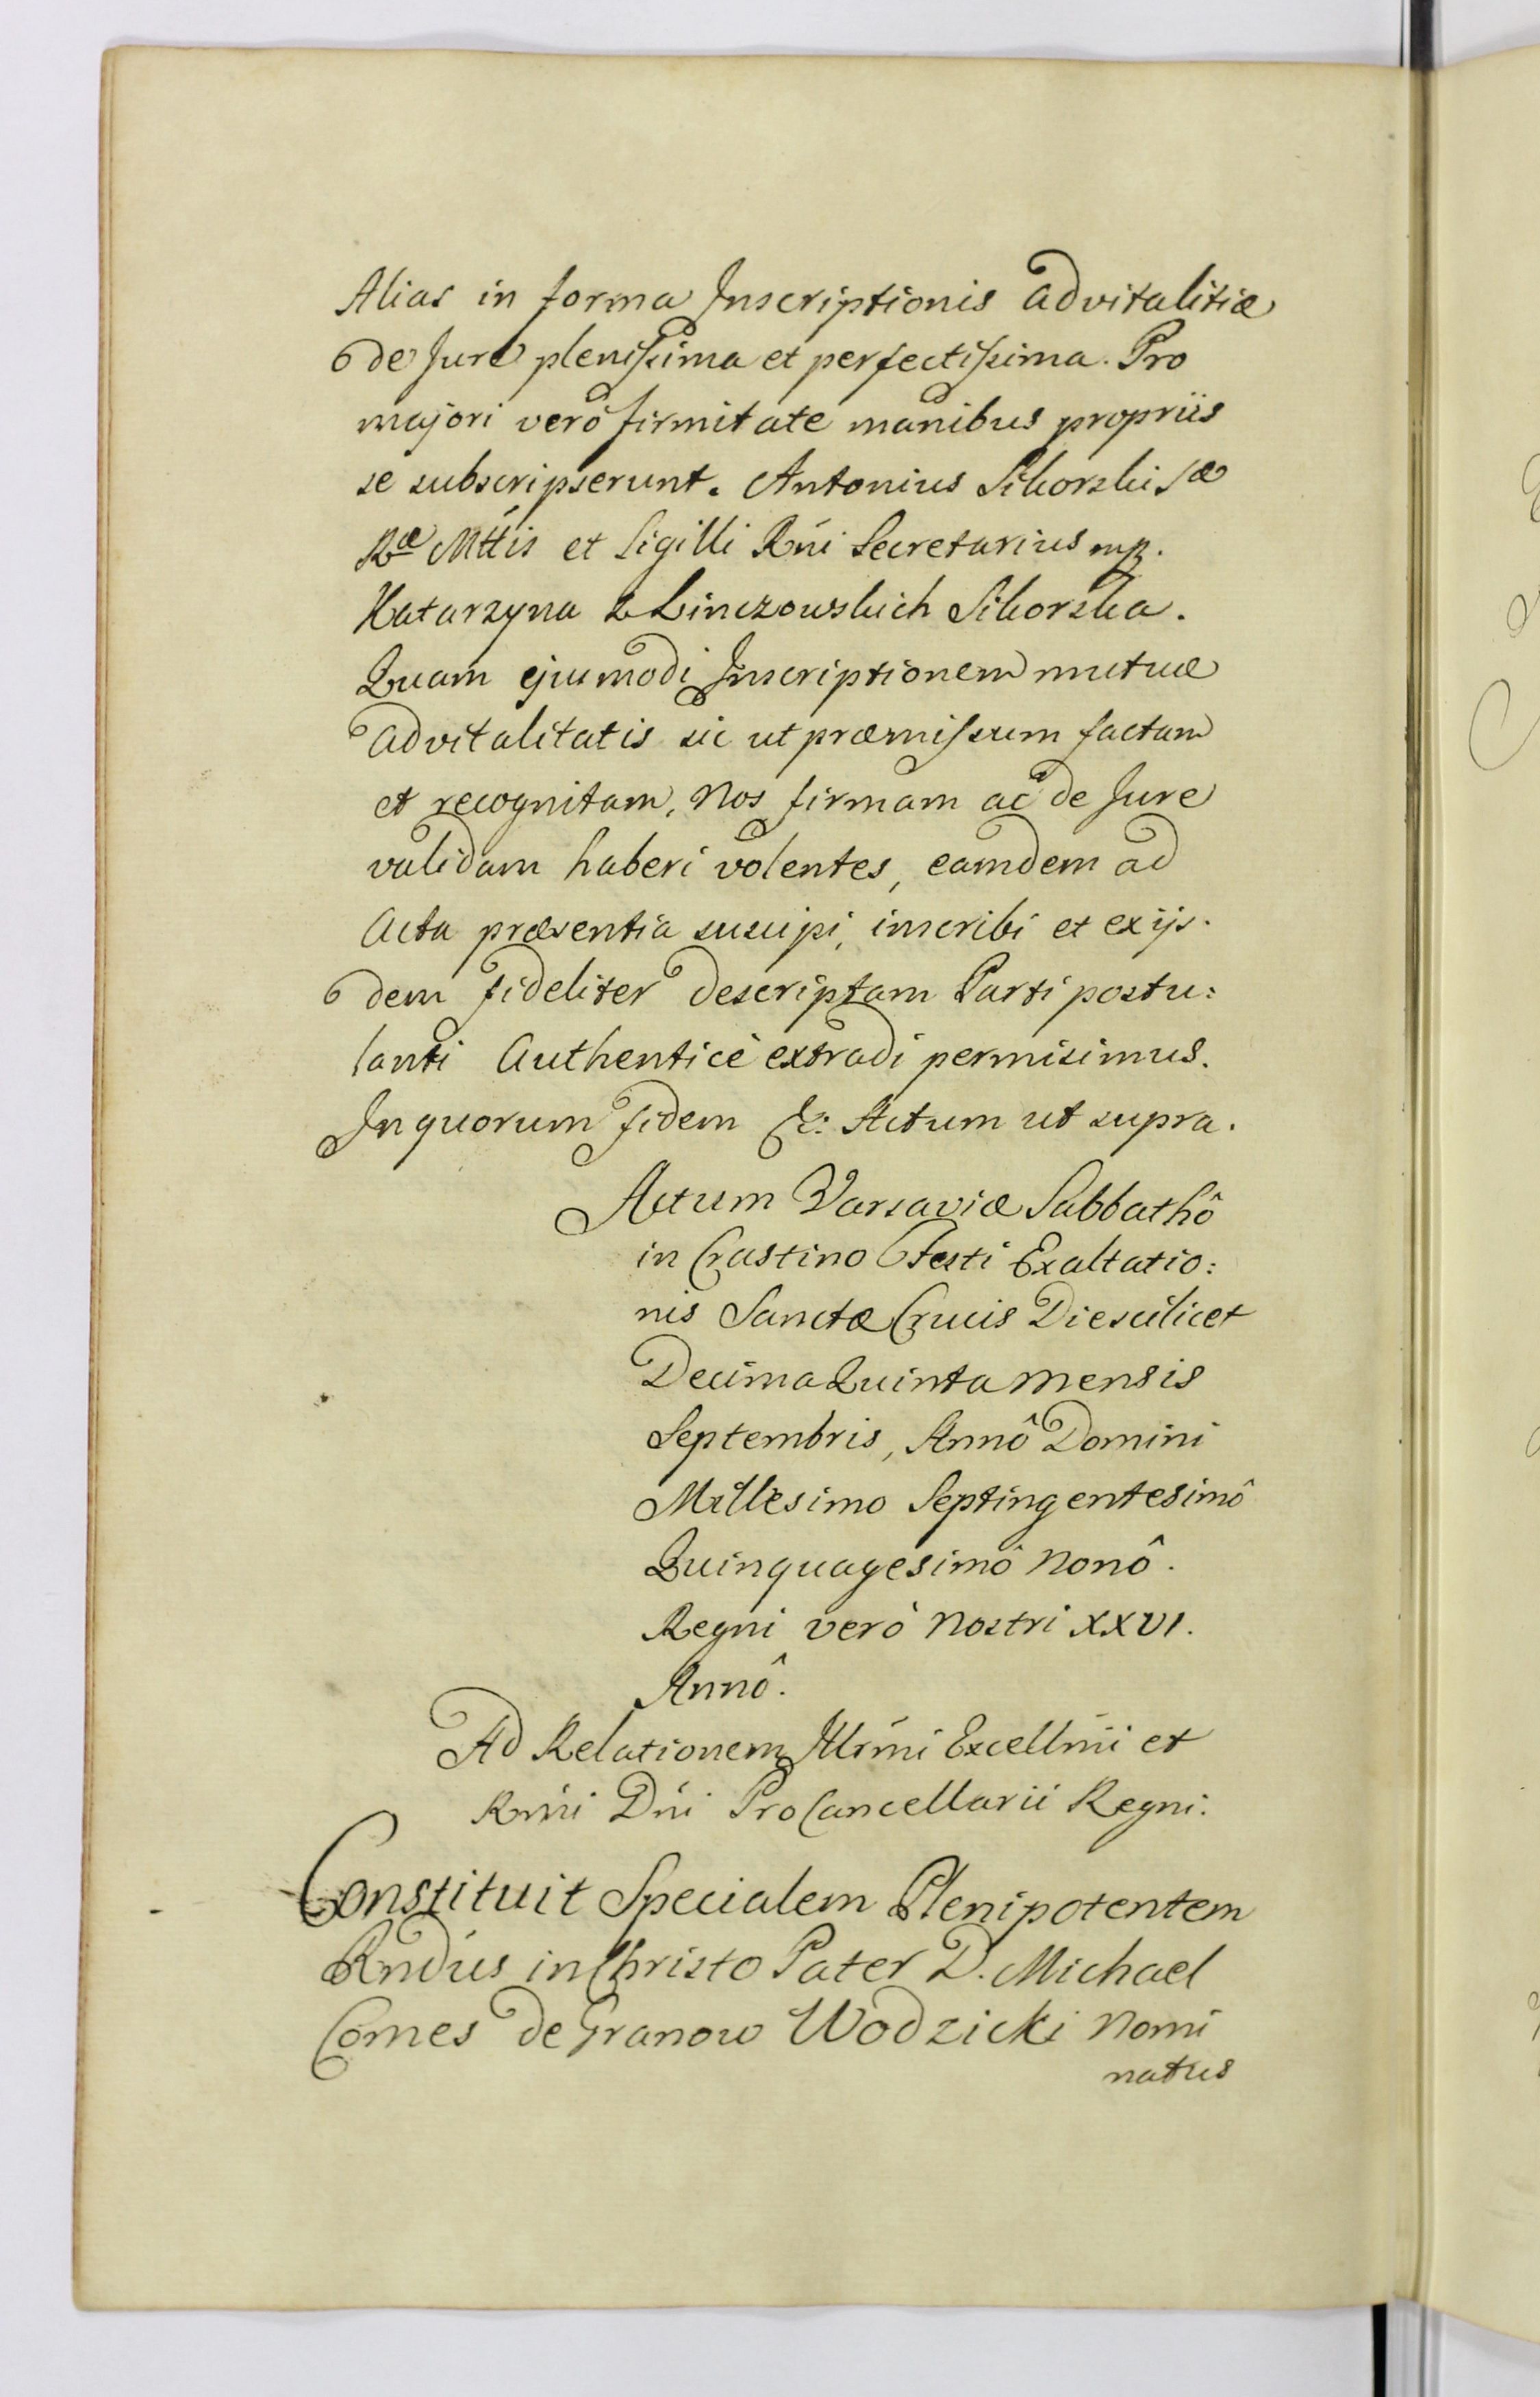 Alias in forma Inscriptionis advitalitiæ
de Jure plenissima et perfectissima. Pro
majori verò firmitate manibus propriis
se subscripserunt. Antonius Sikorski Sæ
Ræ Mttis et Sigilli Rni Secretarius mp.
Katarzyna z Linczowskich Sikorska.
Quam ejusmodi Inscriptionem mutuæ
advitalitatis sic ut præmissum factam
et recognitam, Nos firmam ac de Jure
validam haberi volentes, eamdem ad
Acta præsentia suscipi, inscribi et ex ijs-
dem fideliter descriptam Parti postu:
lanti Authenticè extradi permisimus.
In quorum fidem &: Actum ut supra.
Actum Varsaviæ Sabbathô
in Crastino Festi Exaltatio:
nis Sanctæ Crucis Die scilicet
Decima Quinta mensis
Septembris, Annô Domini
Millesimo Septingentesimô
Quinquagesimô Nonô.
Regni verò Nostri XXVI.
Annô.
Ad Relationem Illrmi Excellmi et
Rmi Dni ProCancellarii Regni:
Constituit Specialem Plenipotentem
Rndus in Christo Pater D. Michael
Comes de Granow Wodzicki Nomi
natus